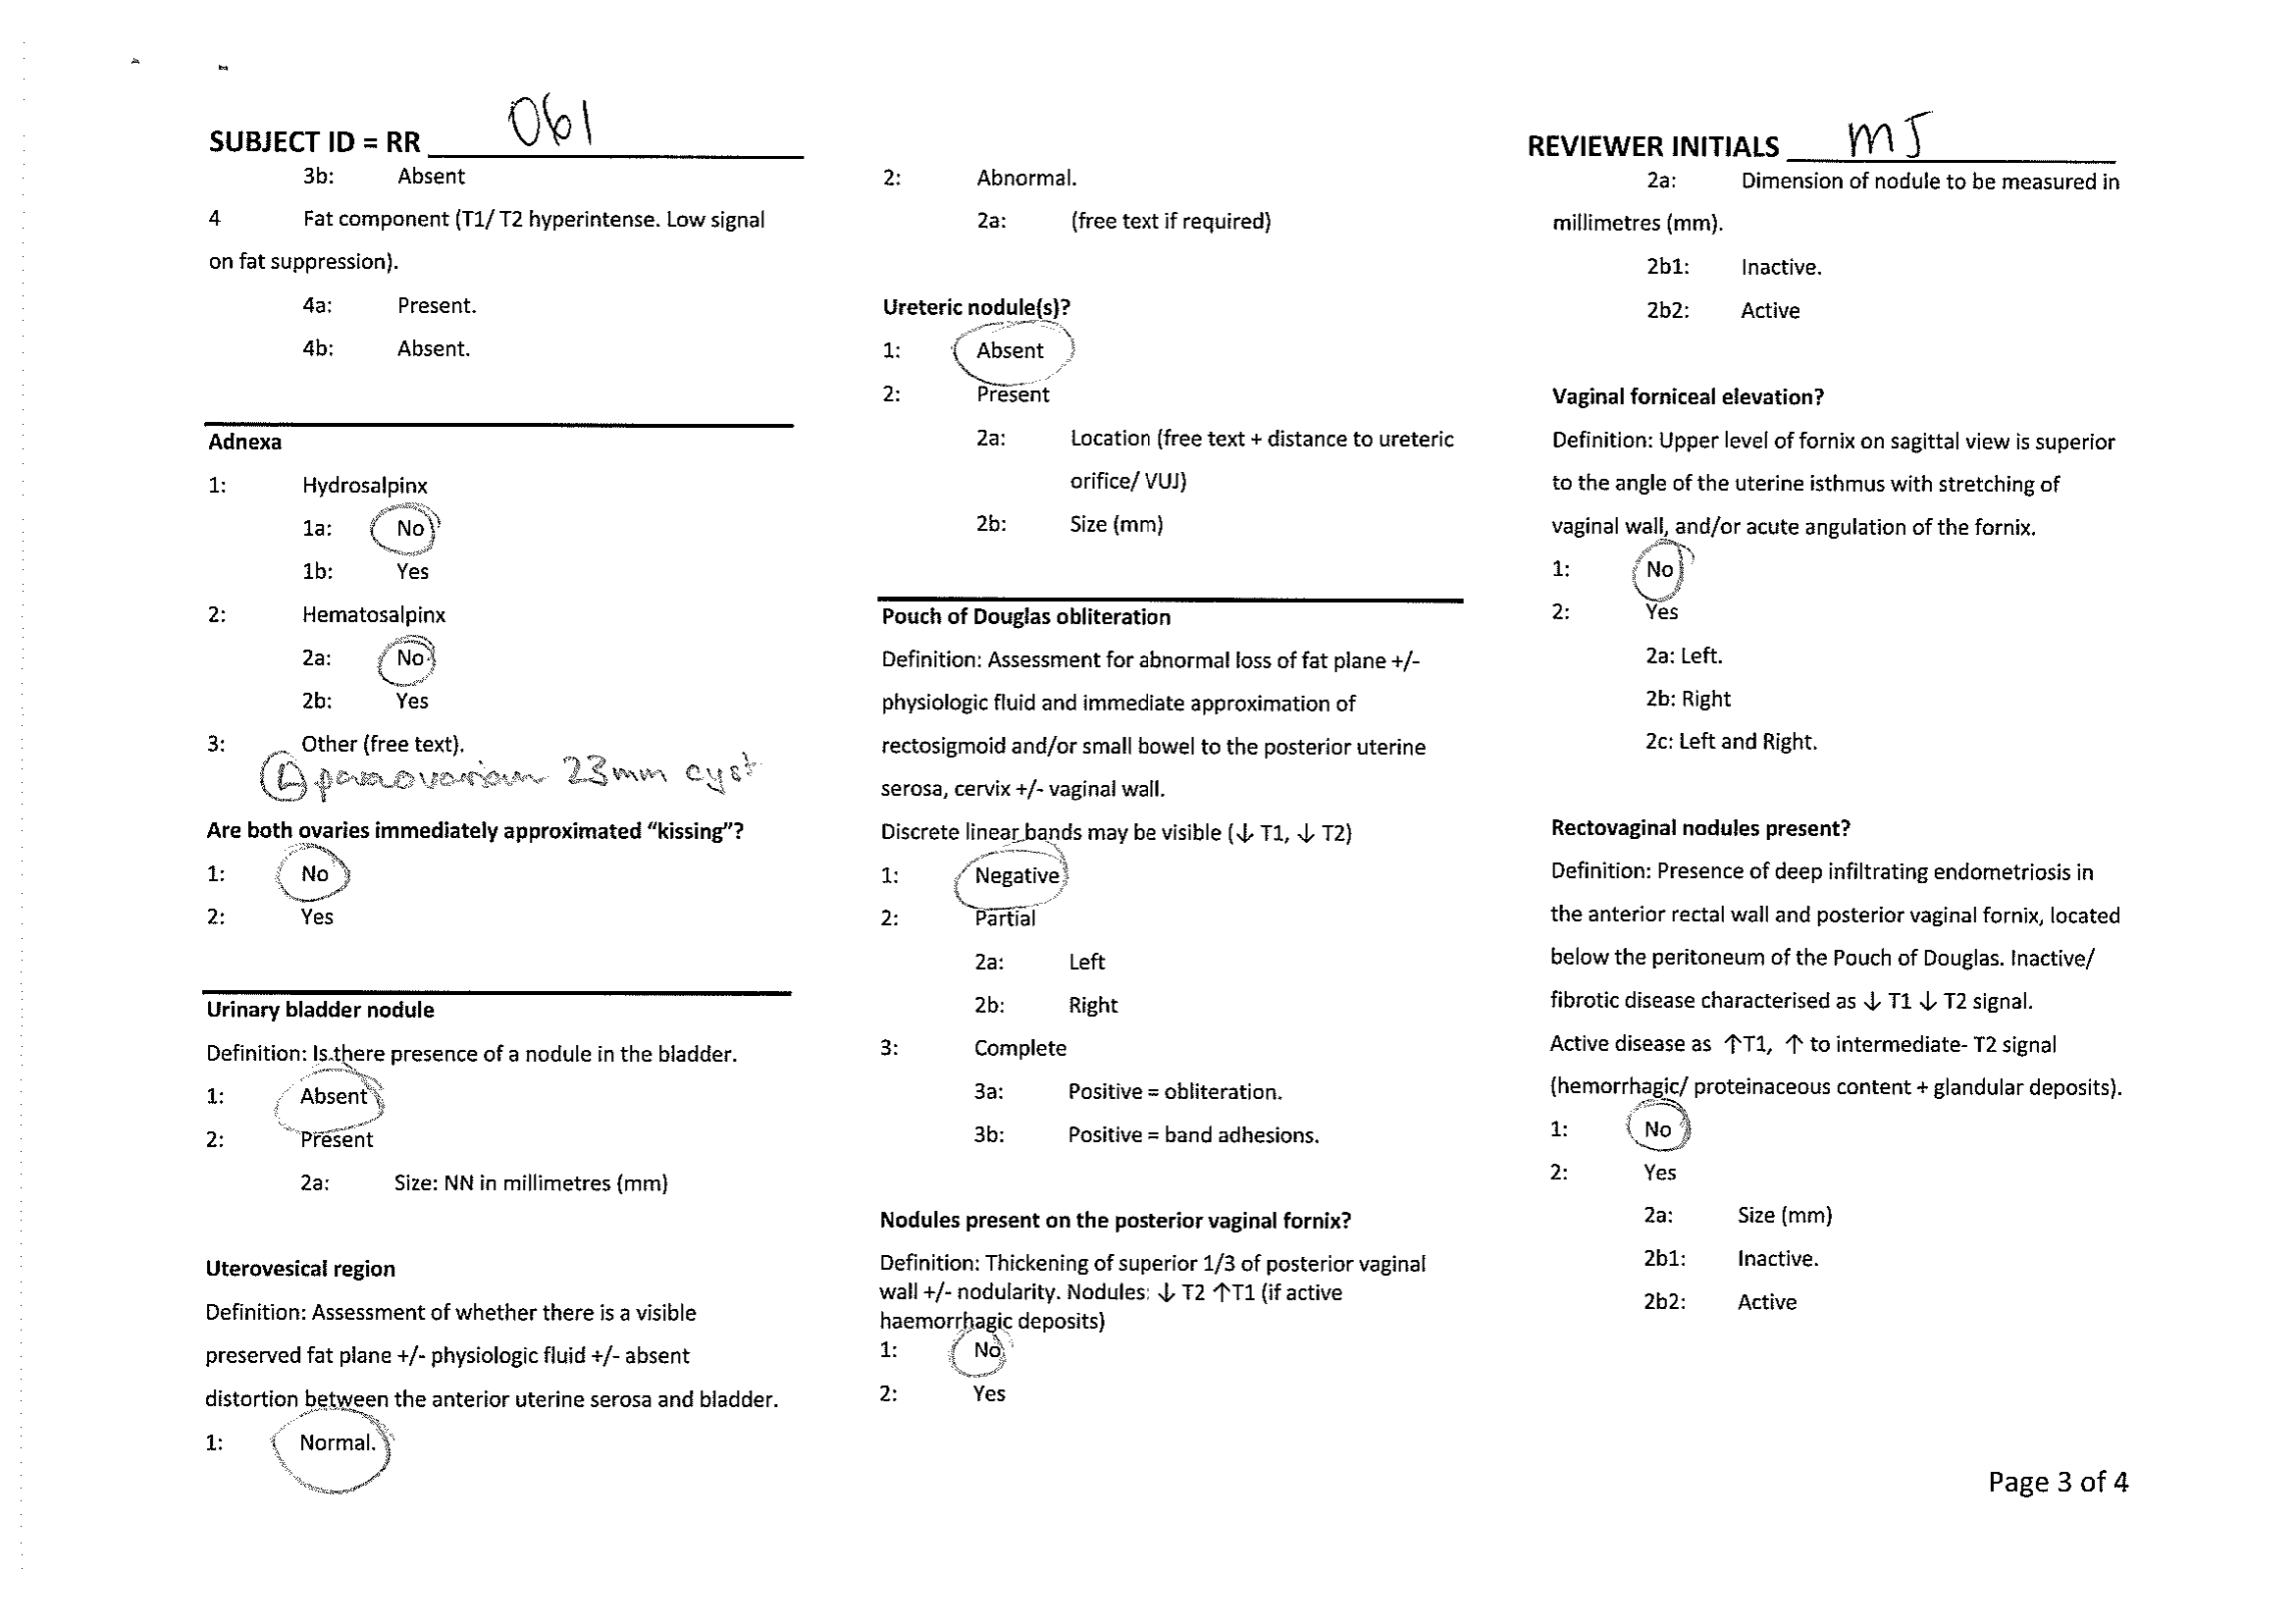 SUBJECT ID = RR 061
3b: Absent
4 Fat component (T1/ T2 hyperintense. Low signal
on fat suppression).
4a: Present.
4b: Absent.
Adnexa
1: Hydrosalpinx
1a: No
1b: Yes
2: Hematosalpinx
2a: No
2b: Yes
3: Other (free text).
(L) paraovarian 23mm cyst
Are both ovaries immediately approximated “kissing”?
1: No
2: Yes
Urinary bladder nodule
Definition: Is there presence of a nodule in the bladder.
1: Absent
2: Present
2a: Size: NN in millimetres (mm)
Uterovesical region
Definition: Assessment of whether there is a visible
preserved fat plane +/- physiologic fluid +/- absent
distortion between the anterior uterine serosa and bladder.
1: Normal.
2: Abnormal.
2a: (free text if required)
Ureteric nodule(s)?
1: Absent
2: Present
2a: Location (free text + distance to ureteric
orifice/ VUJ)
2b: Size (mm)
Pouch of Douglas obliteration
Definition: Assessment for abnormal loss of fat plane +/-
physiologic fluid and immediate approximation of
rectosigmoid and/or small bowel to the posterior uterine
serosa, cervix +/- vaginal wall.
Discrete linear bands may be visible (↓ T1, ↓ T2)
1: Negative
2: Partial
2a: Left
2b: Right
3: Complete
3a: Positive = obliteration.
3b: Positive = band adhesions.
Nodules present on the posterior vaginal fornix?
Definition: Thickening of superior 1/3 of posterior vaginal
wall +/- nodularity. Nodules: ↓ T2 ↑T1 (if active
haemorrhagic deposits)
1: No
2: Yes
REVIEWER INITIALS MJ
2a: Dimension of nodule to be measured in
millimetres (mm).
2b1: Inactive.
2b2: Active
Vaginal forniceal elevation?
Definition: Upper level of fornix on sagittal view is superior
to the angle of the uterine isthmus with stretching of
vaginal wall, and/or acute angulation of the fornix.
1: No
2: Yes
2a: Left.
2b: Right
2c: Left and Right.
Rectovaginal nodules present?
Definition: Presence of deep infiltrating endometriosis in
the anterior rectal wall and posterior vaginal fornix, located
below the peritoneum of the Pouch of Douglas. Inactive/
fibrotic disease characterised as ↓ T1 ↓ T2 signal.
Active disease as ↑T1, ↑ to intermediate- T2 signal
(hemorrhagic/ proteinaceous content + glandular deposits).
1: No
2: Yes
2a: Size (mm)
2b1: Inactive.
2b2: Active
Page 3 of 4